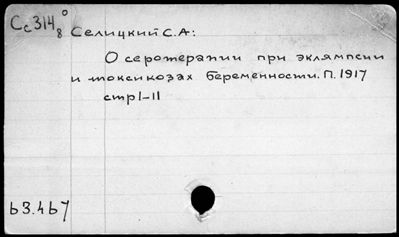 Сс 314 8° Селицкий С.А:
О серотерапии при эклямпсии
и токсикозах беременности. П. 1917
стр 1-11
63.467